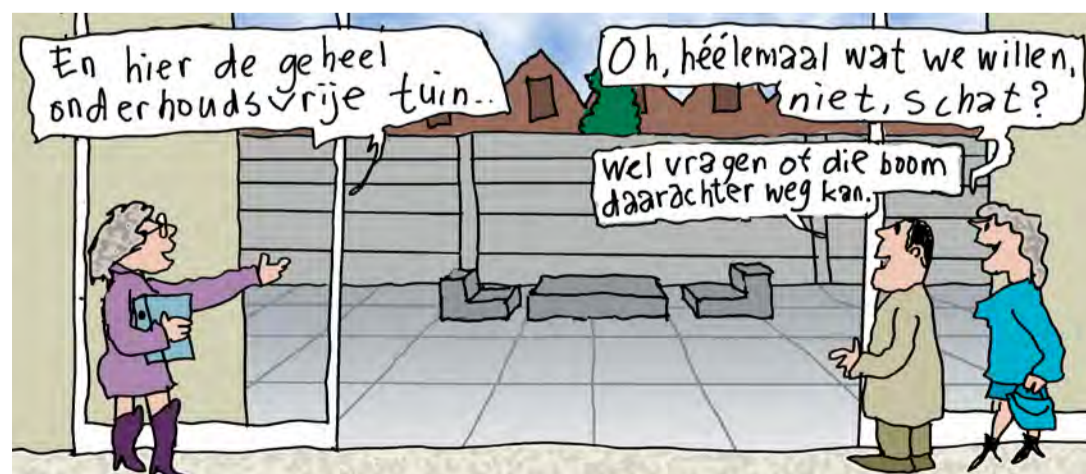 En hier de geheel
onderhoudsvrije tuin..
Oh, héélemaal wat we willen,
niet, schat?
Wel vragen of die boom
daarachter weg kan.